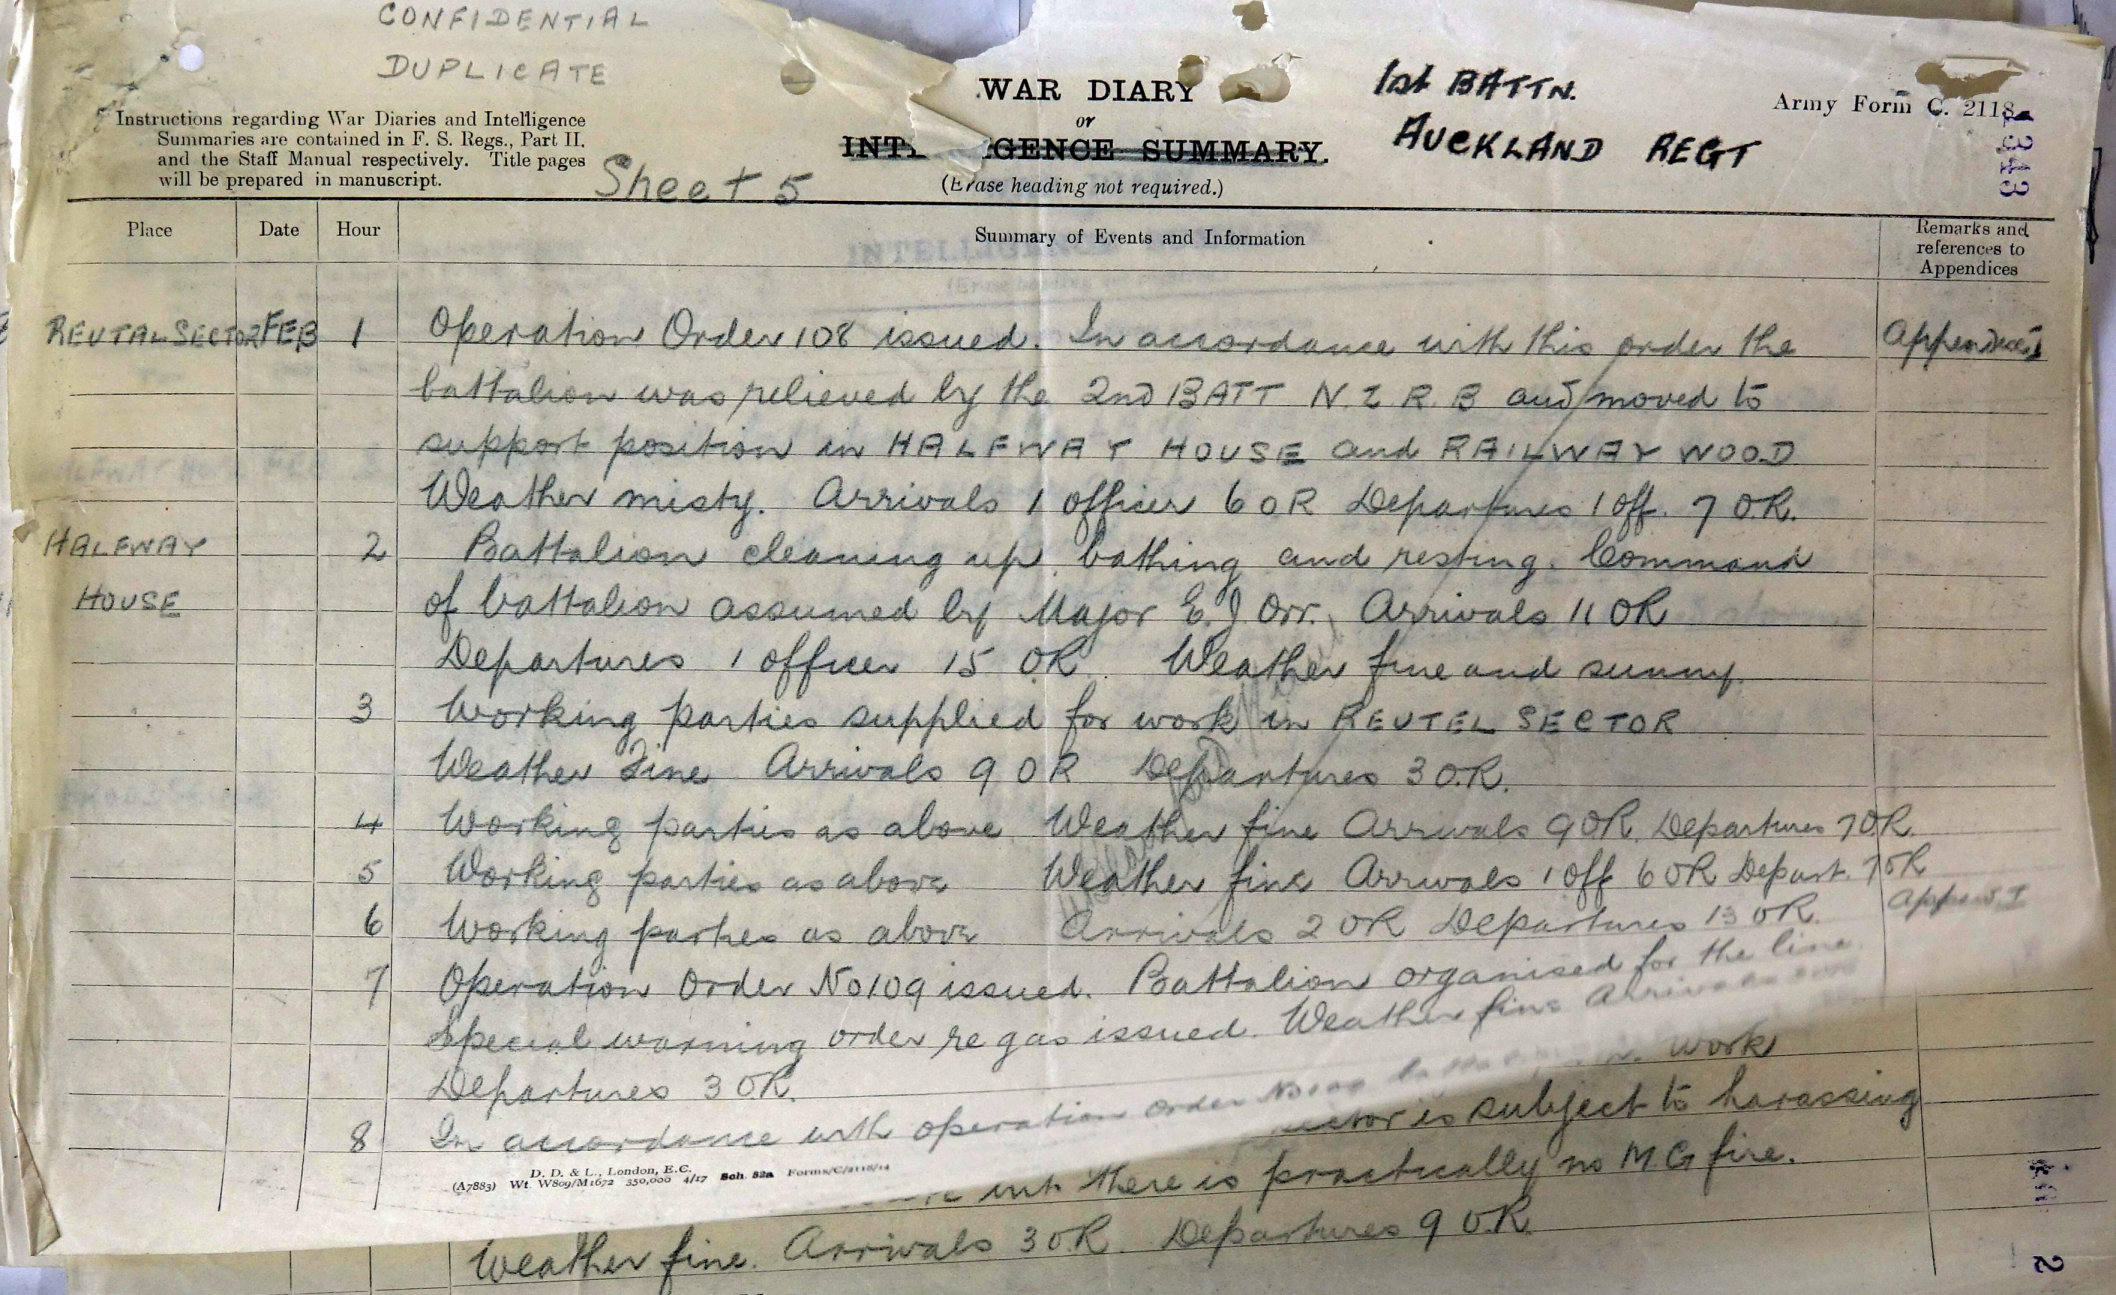 CONFIDENTIAL
DUPLICATE
Instructions regarding War Diaries and Intelligence
Summaries are contained in F. S. Regs., Part II.
and the Staff Manual respectively. Title pages
will be prepared in manuscript.
Sheet 5
WAR DIARY
or
INT IGENCE SUMMARY.
(Erase heading not required.)
1st BATTN.
AUCKLAND REGT
Army Form C. 2118.
1343
Place Date Hour Summary of Events and Information Remarks and references to Appendices
REUTAL SECTOR FEB 1 Operation Order 108 issued. In accordance with this order the
battalion was relieved by the 2ND BATT N.Z R.B and moved to
support position in HALFWAY HOUSE and RAILWAY WOOD
Weather misty. Arrivals 1 officer 6 OR Departures 1 off. 7 O.R.
HALFWAY 2 Battalion cleaning up, bathing and resting. Command
HOUSE of battalion assumed by Major E. J Orr. Arrivals 11 OR
Departures 1 officer 15 OR. Weather fine and sunny.
3 Working parties supplied for work in REUTEL SECTOR
Weather Fine Arrivals 9 OR Departures 3 O.R.
4 Working parties as above. Weather fine Arrivals 9 OR. Departures 7 OR
5 Working parties as above Weather fine Arrivals 1 off 6 OR Depart. 7 OR
6 Working parties as above Arrivals 2 OR Departures 13 OR. Append. I
7 Operation Order No 109 issued. Battalion organised for the line.
Special warning order re gas issued. Weather fine Arrivals
Departures 3 OR.
8 In accordance with operation order No 109
D. D. & L., London, E.C.
(A7883) Wt. W809/M1672 350,000 4/17 Sch. 52a Forms/C/2118/14
Work
is subject to harassing
there is practically no M.G fire.
Weather fine. Arrivals 3 O.R. Departures 9 O.R.
2